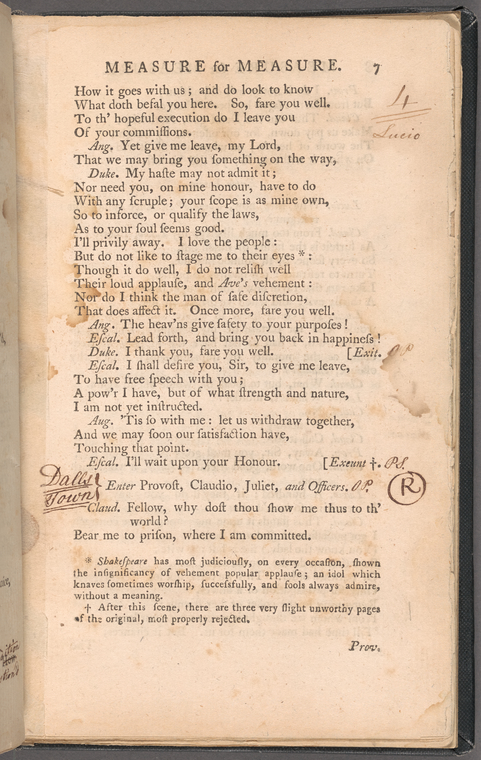 MEASURE for MEASURE. 7
How it goes with us; and do look to know
What doth befal you here. So, fare you well.
To th' hopeful execution do I leave you
Of your commiſſions.
Ang. Yet give me leave, my Lord,
That we may bring you ſomething on the way,
Duke. My haſte may not admit it;
Nor need you, on mine honour, have to do
With any ſcruple; your ſcope is as mine own,
So to inforce, or qualify the laws,
As to your ſoul ſeems good.
I'll privily away. I love the people:
But do not like to ſtage me to their eyes *:
Though it do well, I do not reliſh well
Their loud applauſe, and Ave's vehement:
Nor do I think the man of ſafe diſcretion,
That does affect it. Once more, fare you well.
Ang. The heav'ns give ſafety to your purpoſes!
Eſcal. Lead forth, and bring you back in happineſs!
Duke. I thank you, fare you well. [Exit. OP
Eſcal. I ſhall deſire you, Sir, to give me leave,
To have free ſpeech with you;
A pow'r I have, but of what ſtrength and nature,
I am not yet inſtructed.
Aug. 'Tis ſo with me: let us withdraw together,
And we may ſoon our ſatisfaction have,
Touching that point.
Eſcal. I'll wait upon your Honour. [Exeunt †. PS.
Enter Provoſt, Claudio, Juliet, and Officers. OP.
Claud. Fellow, why doſt thou ſhow me thus to th'
world?
Bear me to priſon, where I am committed.
* Shakeſpeare has moſt judiciouſly, on every occaſion, ſhown
the inſignificancy of vehement popular applauſe; an idol which
knaves ſometimes worſhip, ſucceſsfully, and fools always admire,
without a meaning.
† After this ſcene, there are three very ſlight unworthy pages
of the original, moſt properly rejected.
Prov.
4
Lucio
Dalls
Town
R